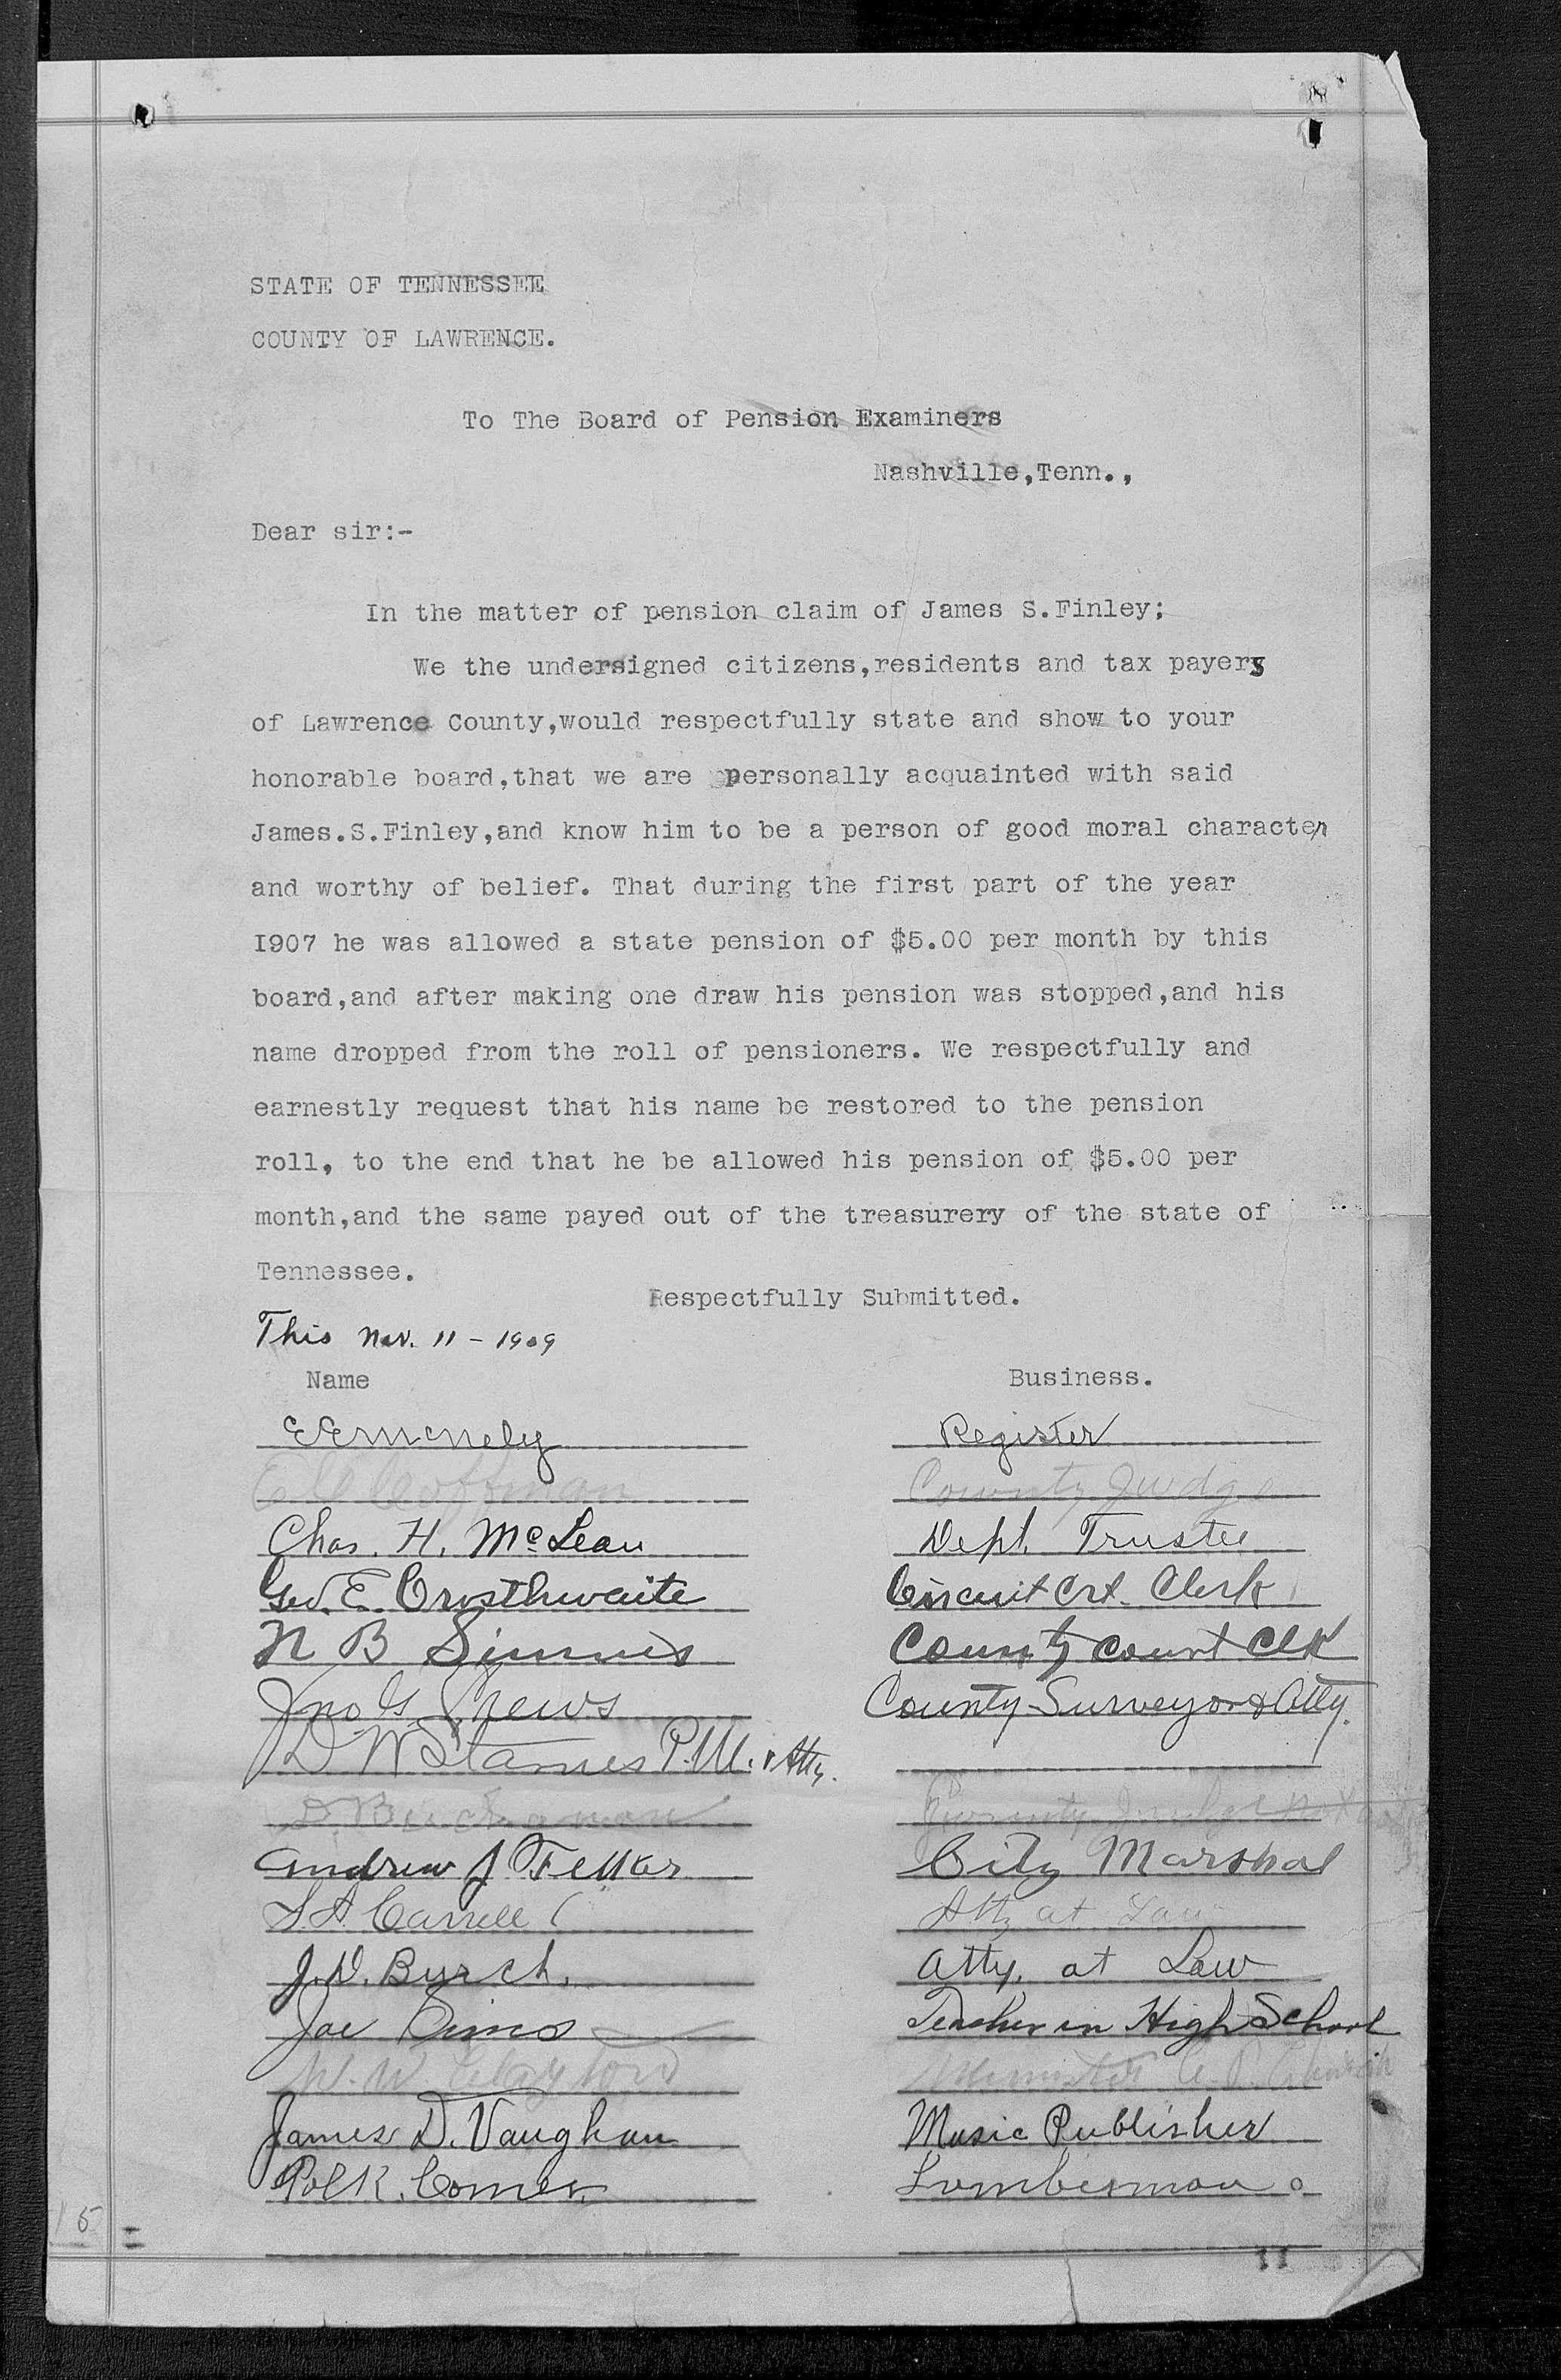 STATE OF TENNESSEE
COUNTY OF LAWRENCE.
To The Board of Pension Examiners
Nashville,Tenn.,
Dear sir:-
In the matter of pension claim of James S.Finley;
We the undersigned citizens,residents and tax payers
of Lawrence County,would respectfully state and show to your
honorable board,that we are personally acquainted with said
James.S.Finley,and know him to be a person of good moral character
and worthy of belief. That during the first part of the year
I907 he was allowed a state pension of $5.00 per month by this
board,and after making one draw his pension was stopped,and his
name dropped from the roll of pensioners. We respectfully and
earnestly request that his name be restored to the pension
roll, to the end that he be allowed his pension of $5.00 per
month,and the same payed out of the treasurery of the state of
Tennessee.
Respectfully Submitted.
This Nov. 11 - 1909
Name Business.
Register
Coffman County Judge
Chas. H. McLean Dept. Trustee
Geo. E. Crosthwaite Circuit Crt. Clerk
N B Simms County Court Clk
Jno G. Crews County Surveyor & Atty.
D W Starnes P.M. & Atty.
Buchanan County Judge
Andrew J Felker City Marshal
Carrell Atty at Law
J.D. Burch. Atty. at Law
Joe Sims Teacher in High School
W. W. Minister C. P. Church
James D. Vaughan Music Publisher
Polk. Comer. Lumberman
15 =
11